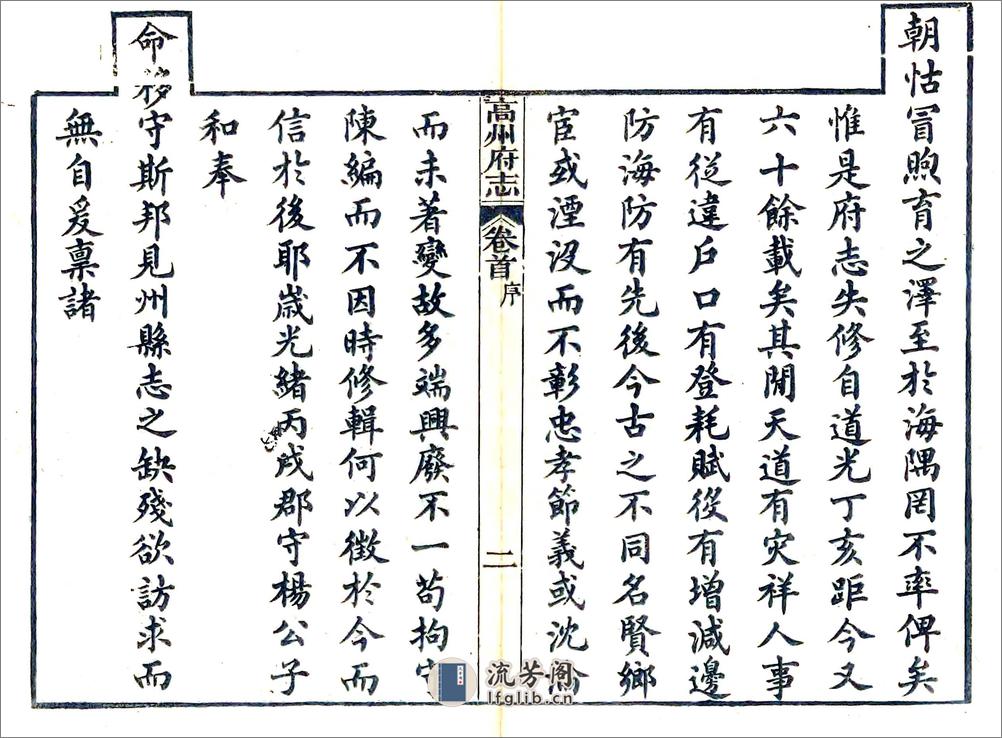 朝怙冒煦育之澤至於海隅罔不率俾矣
惟是府志失修自道光丁亥距今又
六十餘載矣其閒天道有灾祥人事
有從違戶口有登耗賦役有增減邊
防海防有先後今古之不同名賢鄉
宦或湮沒而不彰忠孝節義或沈
高州府志
卷首
序
二
而未著變故多端興廢不一苟拘守
陳編而不因時修輯何以徵於今而
信於後耶歲光緒丙戌郡守楊公子
和奉
命移守斯邦見州縣志之缺殘欲訪求而
無自爰稟諸
流芳阁
lfglib.cn